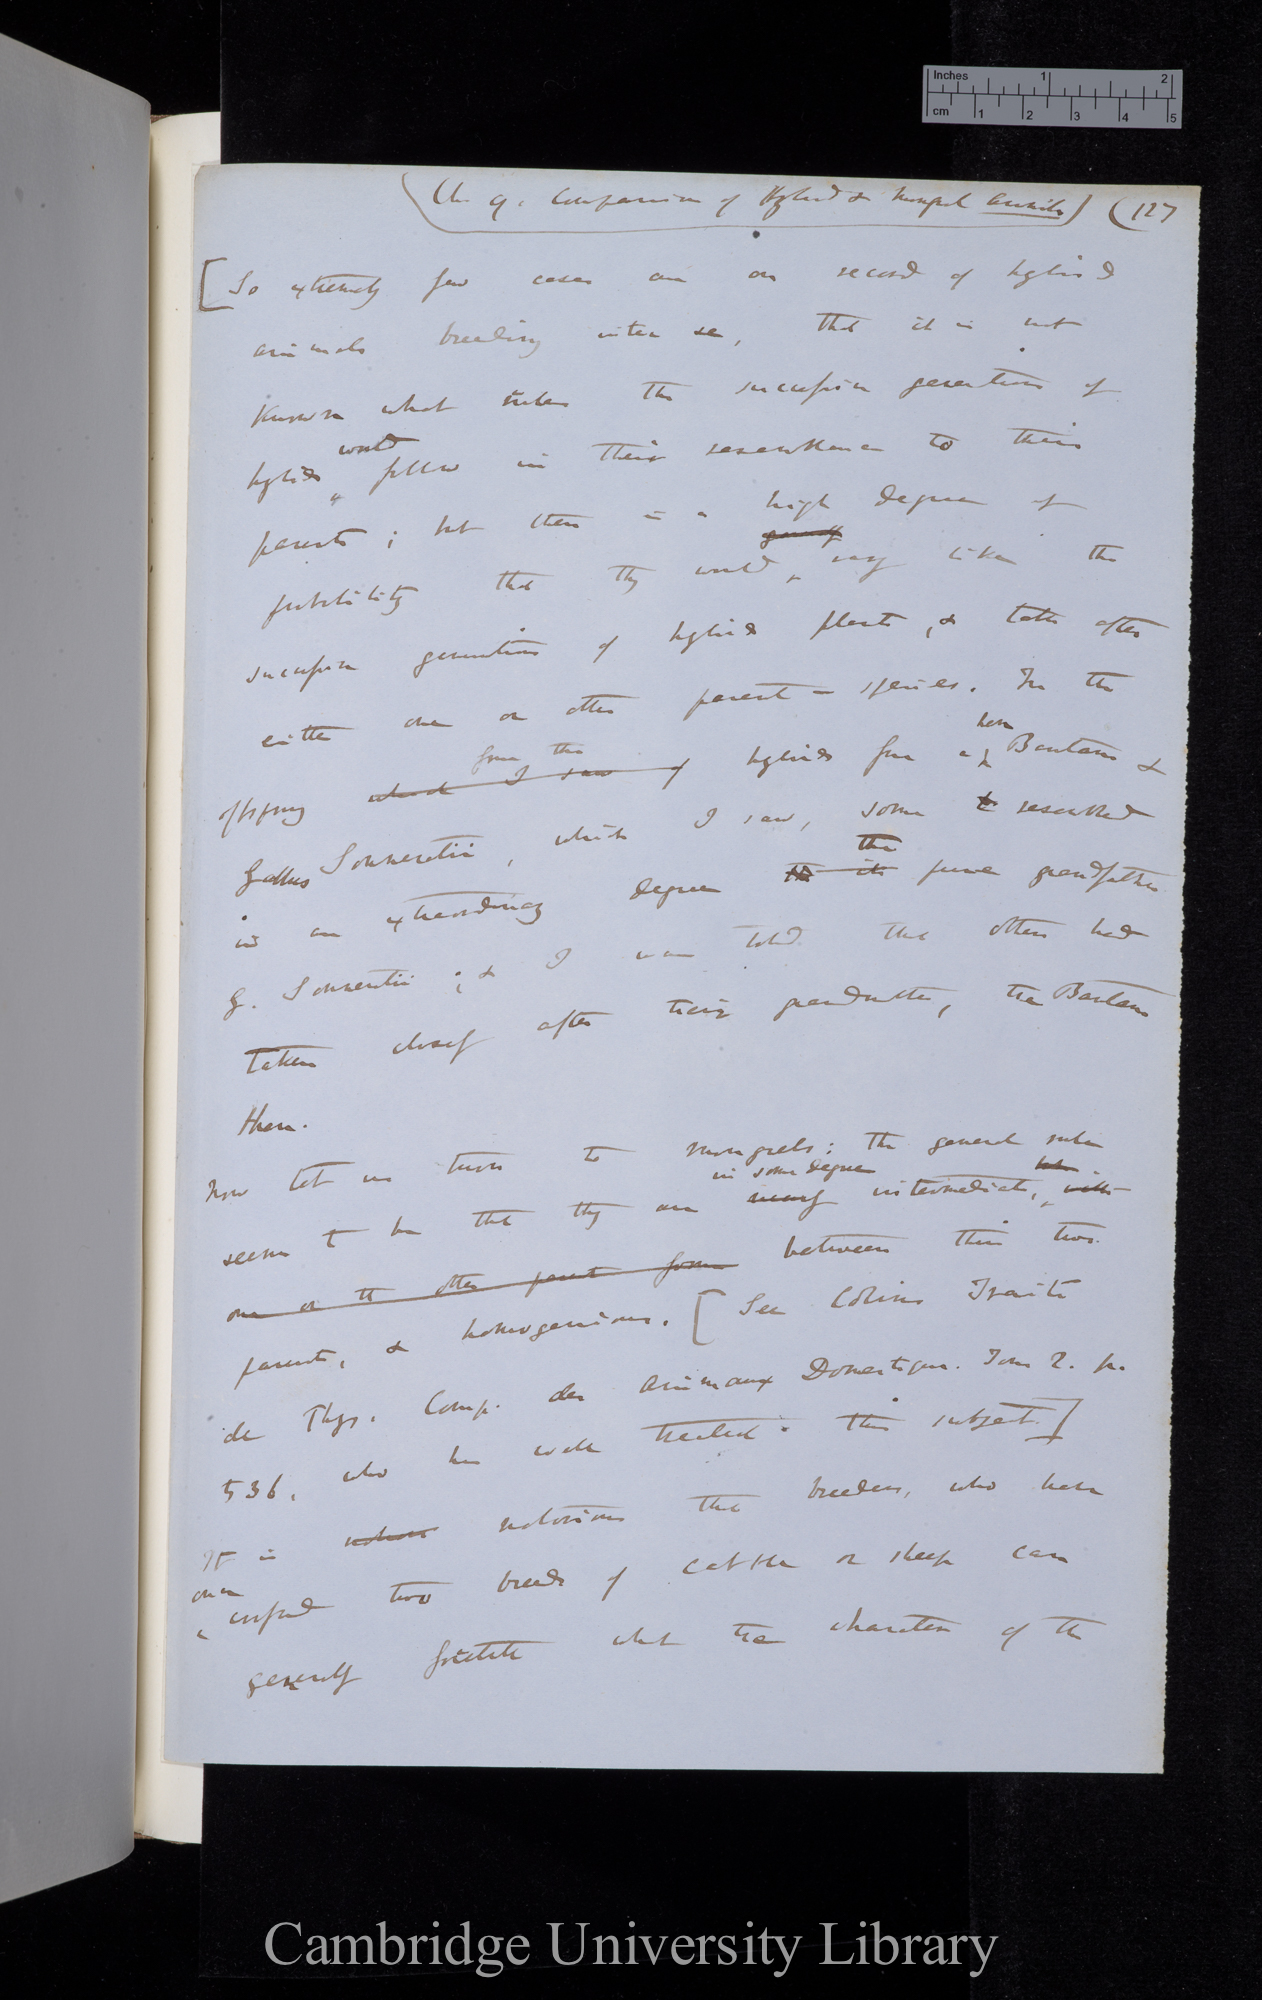 Inches 1 2
cm 1 2 3 4 5
(Ch. 9. Comparison of Hybrid & Mongrel Animals) (127
[So extremely few cases are on record of hybrid
animals breeding inter se, that it is not
known what rules the successive generations of
hybrids would follow in their resemblance to their
parents; but there is a high degree of
probability that they would generally vary like the
successive generations of hybrid plants, & take after
either one or other parent-species. In the
offspring which I saw from the of hybrids from a hen Bantam &
Gallus Sonneratii, which I saw, some resembled
in an extraordinary degree the its pure grandfather
G. Sonneratii; & I was told that others had
taken closely after their grandmother, the Bantam
Hen.
Now let us turn to mongrels: the general rule
seems to be that they are nearly in some degree intermediate,
one or the other parent form between their two
parents, & homogenious. [See Colins Traite
de Phys. Comp. des Animaux Domestiques. Tom 2. p.
536, who has well treated this subject.]
It is notorious that breeders, who have
once crossed two breeds of cattle or sheep can
generally foretell what the character of the
Cambridge University Library